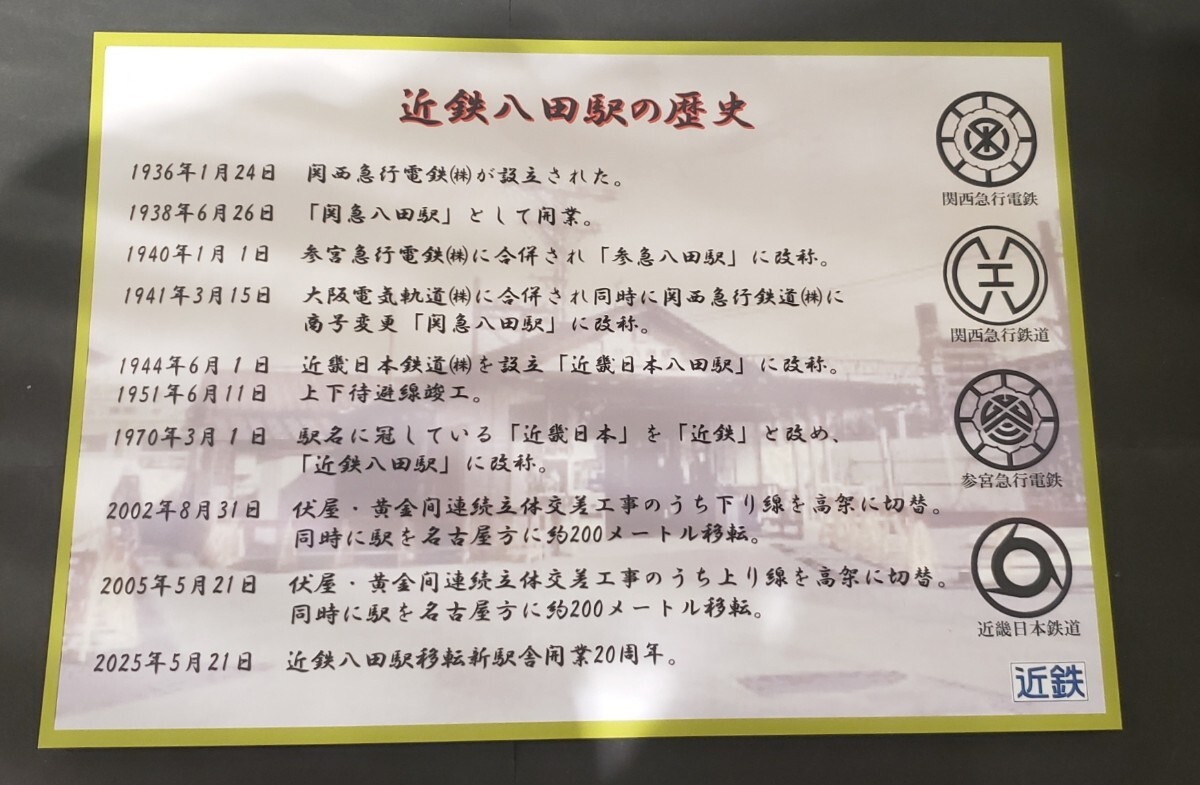 近鉄八田駅の歴史
1936年1月24日 関西急行電鉄㈱が設立された。
1938年6月26日 「関急八田駅」として開業。
1940年1月1日 参宮急行電鉄㈱に合併され「参急八田駅」に改称。
1941年3月15日 大阪電気軌道㈱に合併され同時に関西急行鉄道㈱に
商号変更「関急八田駅」に改称。
1944年6月1日 近畿日本鉄道㈱を設立「近畿日本八田駅」に改称。
1951年6月11日 上下待避線竣工。
1970年3月1日 駅名に冠している「近畿日本」を「近鉄」と改め、
「近鉄八田駅」に改称。
2002年8月31日 伏屋・黄金間連続立体交差工事のうち下り線を高架に切替。
同時に駅を名古屋方に約200メートル移転。
2005年5月21日 伏屋・黄金間連続立体交差工事のうち上り線を高架に切替。
同時に駅を名古屋方に約200メートル移転。
2025年5月21日 近鉄八田駅移転新駅舎開業20周年。
関西急行電鉄
関西急行鉄道
参宮急行電鉄
近畿日本鉄道
近鉄